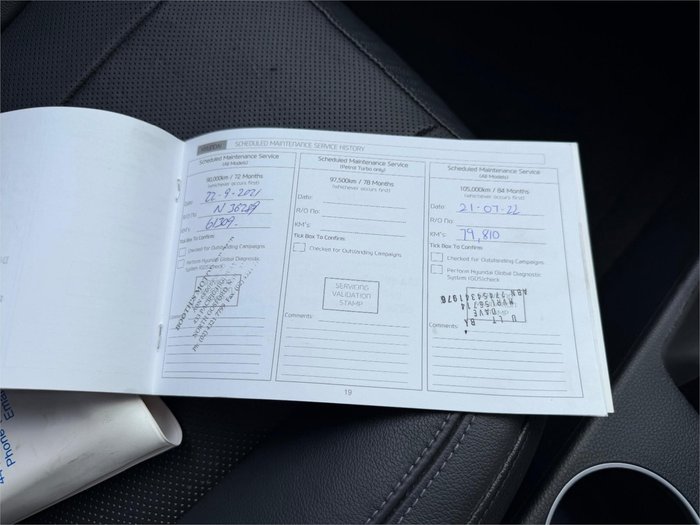 HYUNDAI SCHEDULED MAINTENANCE SERVICE HISTORY
Scheduled Maintenance Service
(All Models)
90,000km / 72 Months
(whichever occurs first)
Date: 22-9-2021
R/O No: N 36289
KM's: 61309.
Tick Box To Confirm:
Checked for Outstanding Campaigns
Perform Hyundai Global Diagnostic
System (GDS)check
NORTH GOSFORD
Comments:
Scheduled Maintenance Service
(Petrol Turbo only)
97,500km / 78 Months
(whichever occurs first)
Date:
R/O No:
KM's:
Tick Box To Confirm:
Checked for Outstanding Campaigns
SERVICING
VALIDATION
STAMP
Comments:
Scheduled Maintenance Service
(All Models)
105,000km / 84 Months
(whichever occurs first)
Date: 21-07-22
R/O No:
KM's: 79,810
Tick Box To Confirm:
Checked for Outstanding Campaigns
Perform Hyundai Global Diagnostic
System (GDS)check
DAVE
ABN
Comments:
19
Phone
Email